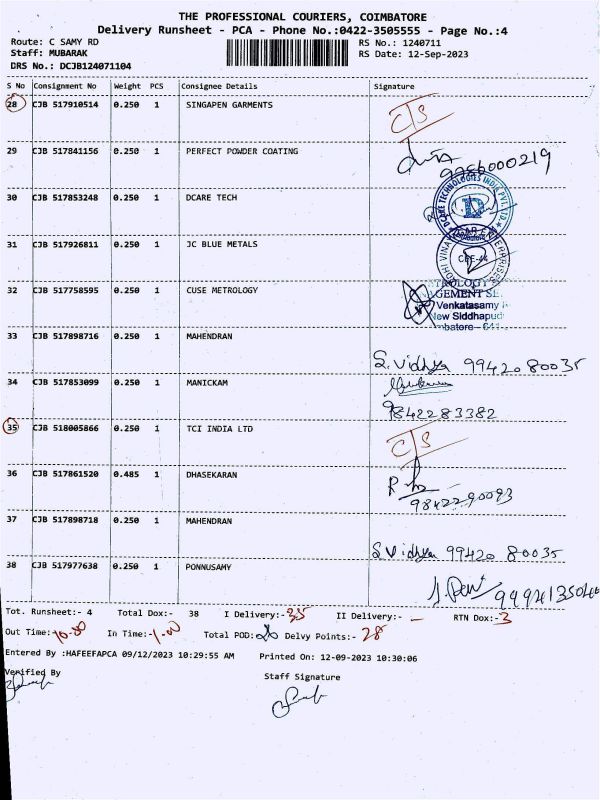 THE PROFESSIONAL COURIERS, COIMBATORE
Delivery Runsheet - PCA - Phone No.:0422-3505555 - Page No.:4
Route: C SAMY RD RS No.: 1240711
Staff: MUBARAK RS Date: 12-Sep-2023
DRS No.: DCJB124071104
S No Consignment No Weight PCS Consignee Details Signature
28 CJB 517910514 0.250 1 SINGAPEN GARMENTS C/S
29 CJB 517841156 0.250 1 PERFECT POWDER COATING
30 CJB 517853248 0.250 1 DCARE TECH DCARE TECHNOLOGIES INDIA PVT. LTD
31 CJB 517926811 0.250 1 JC BLUE METALS
32 CJB 517758595 0.250 1 CUSE METROLOGY
Venkatasamy
New Siddhapud
33 CJB 517898716 0.250 1 MAHENDRAN S.Vidhya 99420 80035
34 CJB 517853099 0.250 1 MANICKAM
9842283382
35 CJB 518005866 0.250 1 TCI INDIA LTD C/S
36 CJB 517861520 0.485 1 DHASEKARAN
9842290093
37 CJB 517898718 0.250 1 MAHENDRAN S Vidhya 99420 80035
38 CJB 517977638 0.250 1 PONNUSAMY
Tot. Runsheet:- 4 Total Dox:- 38 I Delivery:- 35 II Delivery:- - RTN Dox:-3
Out Time:-10.00 In Time:-1.00 Total POD: Delvy Points:- 28
Entered By :HAFEEFAPCA 09/12/2023 10:29:55 AM Printed On: 12-09-2023 10:30:06
Verified By Staff Signature